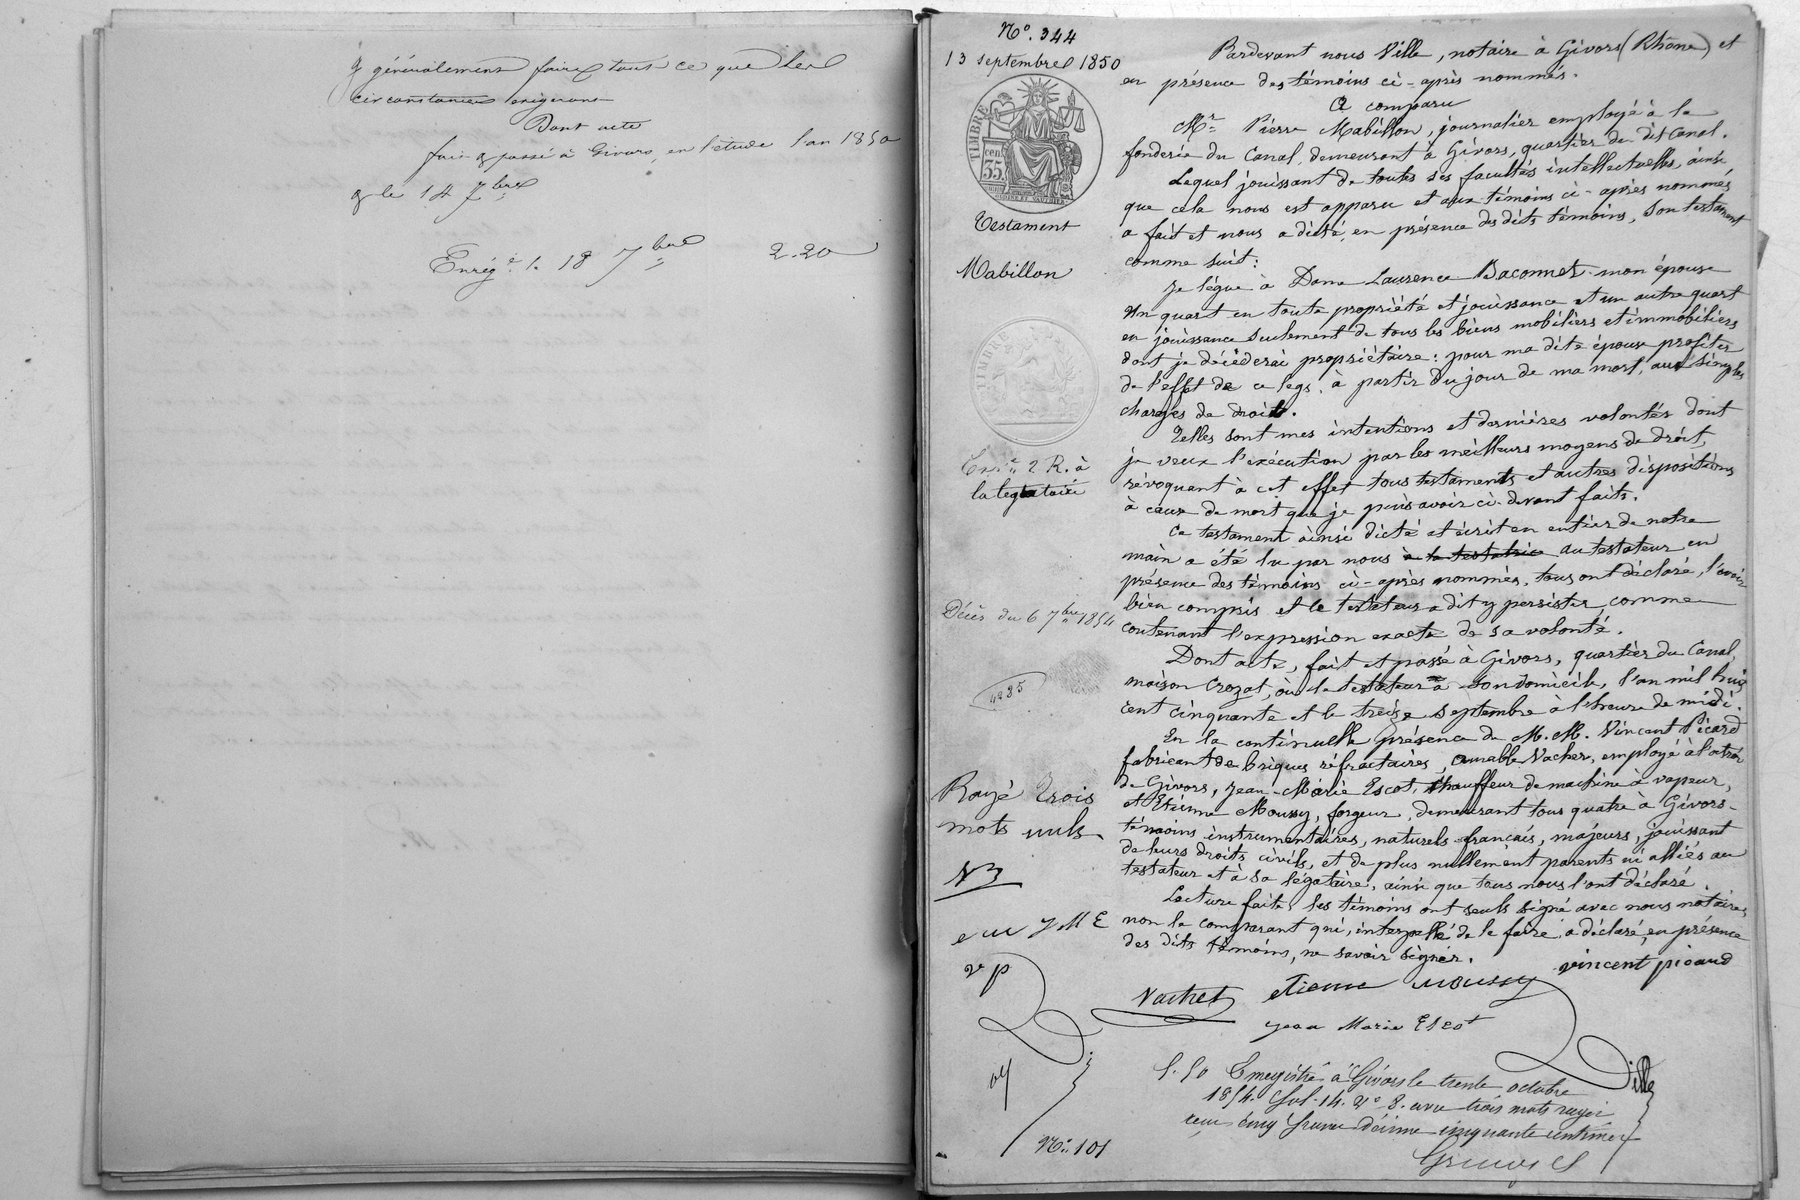 & généralement faire tout ce que les
circonstances exigeront
Dont acte
fait & passé à Givors, en l'étude l'an 1850
& le 14 7bre
Enrégé. l. 18 7bre 2.20
No. 344
13 septembre 1850
TIMBRE
cen.
35.
Testament
Mabillon
TIMBRE
Exp.on 2 R. à
la légataire
Décès du 6 7bre 1854
4235
Rayé trois
mots nuls
JME
v p
No. 101
Pardevant nous Ville, notaire à Givors (Rhône) et
en présence des témoins ci-après nommés.
A comparu
Mr. Pierre Mabillon, journalier employé à la
fonderie du Canal, demeurant à Givors, quartier du dit Canal.
Lequel jouissant de toutes ses facultés intellectuelles, ainsi
que cela nous est apparu et aux témoins ci-après nommés
a fait et nous a dicté, en présence des dits témoins, son testament
comme suit:
Je lègue à Dame Laurence Baconnet mon épouse
un quart en toute propriété et jouissance et un autre quart
en jouissance seulement de tous les biens mobiliers et immobiliers
dont je décéderai propriétaire: pour ma dite épouse profiter
de l'effet de ce legs, à partir du jour de ma mort, aux simples
charges de droit.
Telles sont mes intentions et dernières volontés dont
je veux l'exécution par les meilleurs moyens de droit,
révoquant à cet effet tous testaments et autres dispositions
à cause de mort que je puis avoir ci-devant faits.
Ce testament ainsi dicté et écrit en entier de notre
main a été lu par nous à la testatrice au testateur en
présence des témoins ci-après nommés, tous ont déclaré, l'avoir
bien compris et le testateur a dit y persister, comme
contenant l'expression exacte de sa volonté.
Dont acte, fait et passé à Givors, quartier du Canal,
maison Crozat, où le testateur a son domicile, l'an mil huit
cent cinquante et le treize septembre à l'heure de midi.
En la continuelle présence de M.M. Vincent Picard
fabricant de briques réfractaires, Amable Vacher, employé à l'octroi
de Givors, Jean-Marie Escot, chauffeur de machine à vapeur,
et Etienne Moussy, forgeur, demeurant tous quatre à Givors-
témoins instrumentaires, naturels français, majeurs, jouissant
de leurs droits civils, et de plus nullement parents ni alliés au
testateur et à sa légataire, ainsi que tous nous l'ont déclaré.
Lecture faite, les témoins ont seuls signé avec nous notaire,
non le comparant qui, interpellé de le faire, a déclaré, en présence
des dits témoins, ne savoir signer.
vincent picard
Vacher etienne moussy
jean Marie Escot
Ville
Enregistré à Givors le trente octobre
1854. fol. 14. Vo 8. avec trois mots rayés
reçu cinq francs décime cinquante centimes